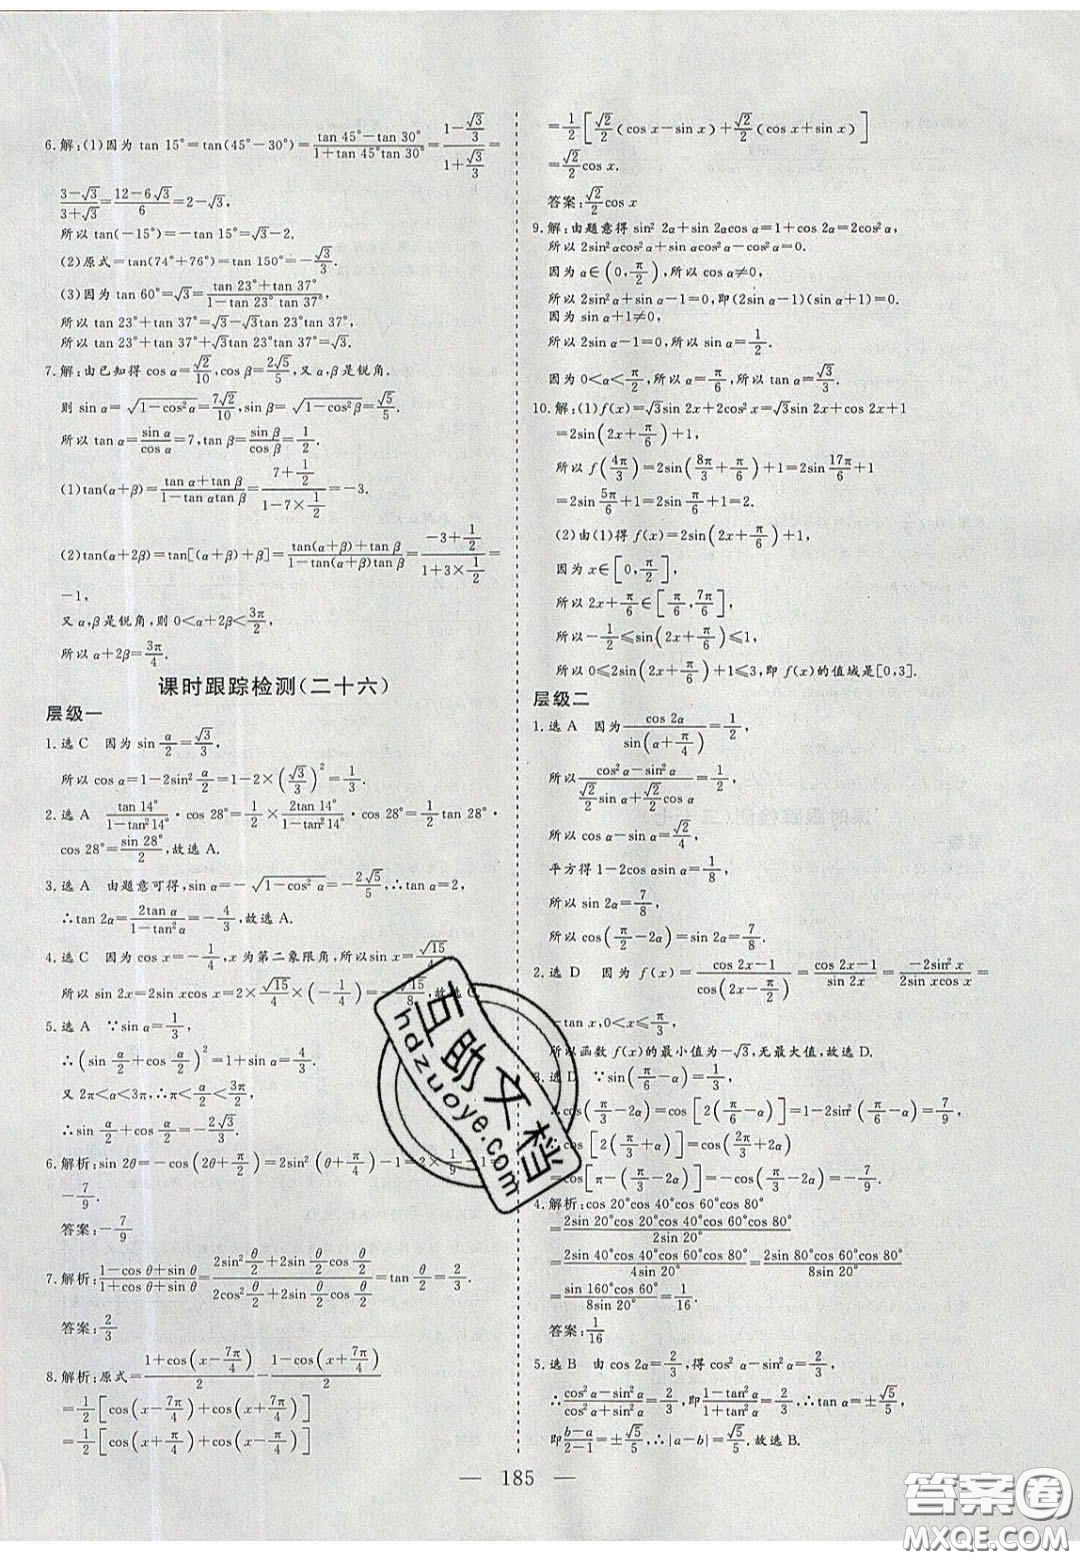 6.解:(1)因为 tan 15°=tan(45°-30°)=(tan 45°-tan 30°)/(1+tan 45°tan 30°)=(1-√3/3)/(1+√3/3)=
(3-√3)/(3+√3)=(12-6√3)/6=2-√3,
所以 tan(-15°)=√3-2.
(2)原式=tan(74°+76°)=tan 150°=-√3/3.
(3)因为 tan 60°=√3=(tan 23°+tan 37°)/(1-tan 23°tan 37°),
所以 tan 23°+tan 37°=√3-√3tan 23°tan 37°,
所以 tan 23°+tan 37°+√3tan 23°tan 37°=√3.
7.解:由已知得 cos α=√2/10,cos β=2√5/5,又 α,β是锐角.
则 sin α=√(1-cos²α)=7√2/10,sin β=√(1-cos²β)=√5/5.
所以 tan α=sin α/cos α=7,tan β=sin β/cos β=1/2.
(1)tan(α+β)=(tan α+tan β)/(1-tan αtan β)=(7+1/2)/(1-7×1/2)=-3.
(2)tan(α+2β)=tan[(α+β)+β]=(tan(α+β)+tan β)/(1-tan(α+β)tan β)=(-3+1/2)/(1+3×1/2)=
-1,
又 α,β是锐角,则 0<α+2β<3π/2,
所以 α+2β=3π/4.
课时跟踪检测(二十六)
层级一
1.选 C 因为 sin α/2=√3/3,
所以 cos α=1-2sin² α/2=1-2×(√3/3)²=1/3.
2.选 A tan 14°/(1-tan²14°)·cos 28°=1/2×2tan 14°/(1-tan²14°)·
cos 28°=sin 28°/2,故选 A.
3.选 A 由题意可得,sin α=-√(1-cos² α)=-2√5/5,∴tan α=2,
∴tan 2α=2tan α/(1-tan²α)=-4/3,故选 A.
4.选 C 因为 cos x=-1/4,x 为第二象限角,所以 sin x=√15/4
所以 sin 2x=2sin xcos x=2×√15/4×(-1/4)=-√15/8,故选 C.
5.选 A ∵sin α=1/3,
∴(sin α/2+cos α/2)²=1+sin α=4/3.
又 2π<α<3π,∴π<α/2<3π/2,
∴sin α/2+cos α/2=-2√3/3.
6.解析:sin 2θ=-cos(2θ+π/2)=2sin²(θ+π/4)-1=2×1/9-1=
-7/9.
答案:-7/9
7.解析:(1-cos θ+sin θ)/(1+cos θ+sin θ)=(2sin² θ/2+2sin θ/2cos θ/2)/(2cos² θ/2+2sin θ/2cos θ/2)=tan θ/2=2/3.
答案:2/3
8.解析:原式=(1+cos(x-7π/4))/2-(1-cos(x+7π/4))/2
=1/2[cos(x-7π/4)+cos(x+7π/4)]
=1/2[cos(x+π/4)+cos(x-π/4)]
=1/2[√2/2(cos x-sin x)+√2/2(cos x+sin x)]
=√2/2cos x.
答案:√2/2cos x
9.解:由题意得 sin² 2α+sin 2αcos α=1+cos 2α=2cos²α,
所以 2sin²αcos²α+sin αcos²α-cos²α=0.
因为 α∈(0,π/2),所以 cos α≠0,
所以 2sin²α+sin α-1=0,即(2sin α-1)(sin α+1)=0.
因为 sin α+1≠0,
所以 2sin α-1=0,所以 sin α=1/2.
因为 0<α<π/2,所以 α=π/6,所以 tan α=√3/3.
10.解:(1)f(x)=√3sin 2x+2cos²x=√3sin 2x+cos 2x+1
=2sin(2x+π/6)+1,
所以 f(4π/3)=2sin(8π/3+π/6)+1=2sin 17π/6+1
=2sin 5π/6+1=2×1/2+1=2.
(2)由(1)得 f(x)=2sin(2x+π/6)+1,
因为 x∈[0,π/2],
所以 2x+π/6∈[π/6,7π/6],
所以-1/2≤sin(2x+π/6)≤1,
所以 0≤2sin(2x+π/6)+1≤3,即 f(x)的值域是[0,3].
层级二
1.选 A 因为 cos 2α/sin(α+π/4)=1/2,
所以 (cos²α-sin²α)/(√2/2sin α+√2/2cos α)=1/2,
所以 cos α-sin α=√2/4,
平方得 1-2cos αsin α=1/8,
所以 sin 2α=7/8,
所以 cos(π/2-2α)=sin 2α=7/8.
2.选 D 因为 f(x)=(cos 2x-1)/cos(2x-π/2)=(cos 2x-1)/sin 2x=-2sin²x/2sin xcos x=
-tan x,0<x≤π/3,
所以函数 f(x)的最小值为-√3,无最大值,故选 D.
3.选 D ∵sin(π/6-α)=1/3,
∴cos(π/3-2α)=cos[2(π/6-α)]=1-2sin²(π/6-α)=7/9,
∴cos[2(π/3+α)]=cos(2π/3+2α)
=cos[π-(π/3-2α)]=-cos(π/3-2α)=-7/9.
4.解析:cos 20°cos 40°cos 60°cos 80°
=2sin 20°cos 20°cos 40°cos 60°cos 80°/2sin 20°
=2sin 40°cos 40°cos 60°cos 80°/4sin 20°=2sin 80°cos 80°cos 60°/8sin 20°
=sin 160°cos 60°/8sin 20°=1/16.
答案:1/16
5.选 B 由 cos 2α=2/3,得 cos²α-sin²α=2/3,
∴(cos²α-sin²α)/(cos²α+sin²α)=2/3,即(1-tan²α)/(1+tan²α)=2/3,∴tan α=±√5/5,
即(b-a)/(2-1)=±√5/5,∴|a-b|=√5/5.故选 B.
— 185 —
互助文档
hdzuoye.com
答案圈
MXQE.COM